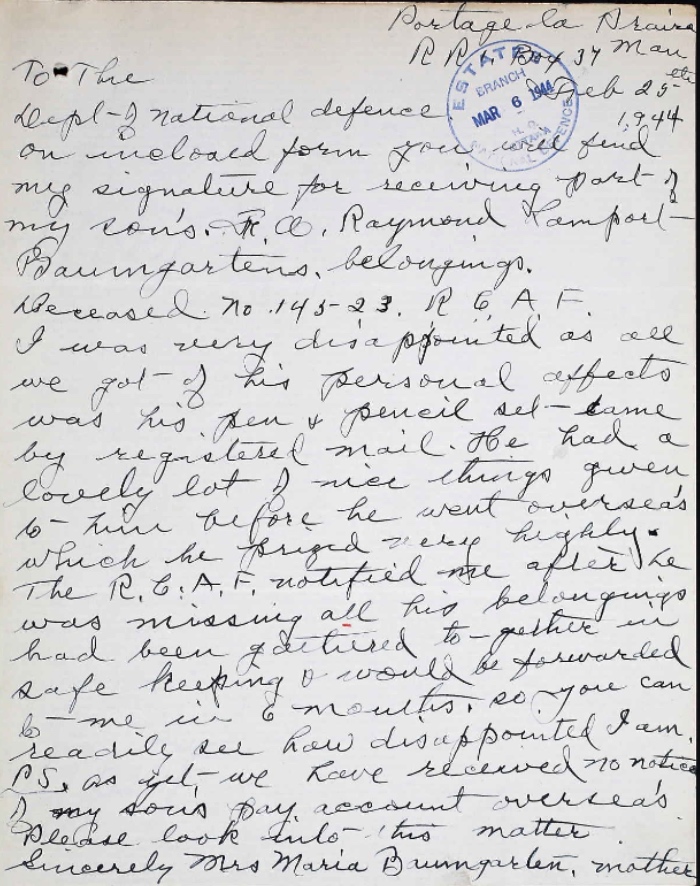 Portage la Praira
R R 1. Box 37 Man
etc
To The Feb 25
Dept of national defence 1944
ESTATES
BRANCH
MAR 6 1944
N. D. H. Q.
OTTAWA
NATIONAL DEFENCE
on inclosed form you will find
my signature for receiving part of
my son's. Raymond Lamport
Baumgartens. belongings.
Deceased. No. 14523. R C A F.
I was very disappointed as all
we got of his personal affects
was his pen & pencil set came
by registered mail. He had a
lovely lot of nice things given
to him before he went oversea's
which he prized very highly.
The R. C. A. F. notified me after he
was missing all his belongings
had been gathered to-gether in
safe keeping & would be forwarded
to me in 6 months. so you can
readily see how disappointed I am.
P.S. as yet we have received no notice
of my son's pay account oversea's.
Please look into this matter
Sincerely Mrs Maria Baumgarten. mother